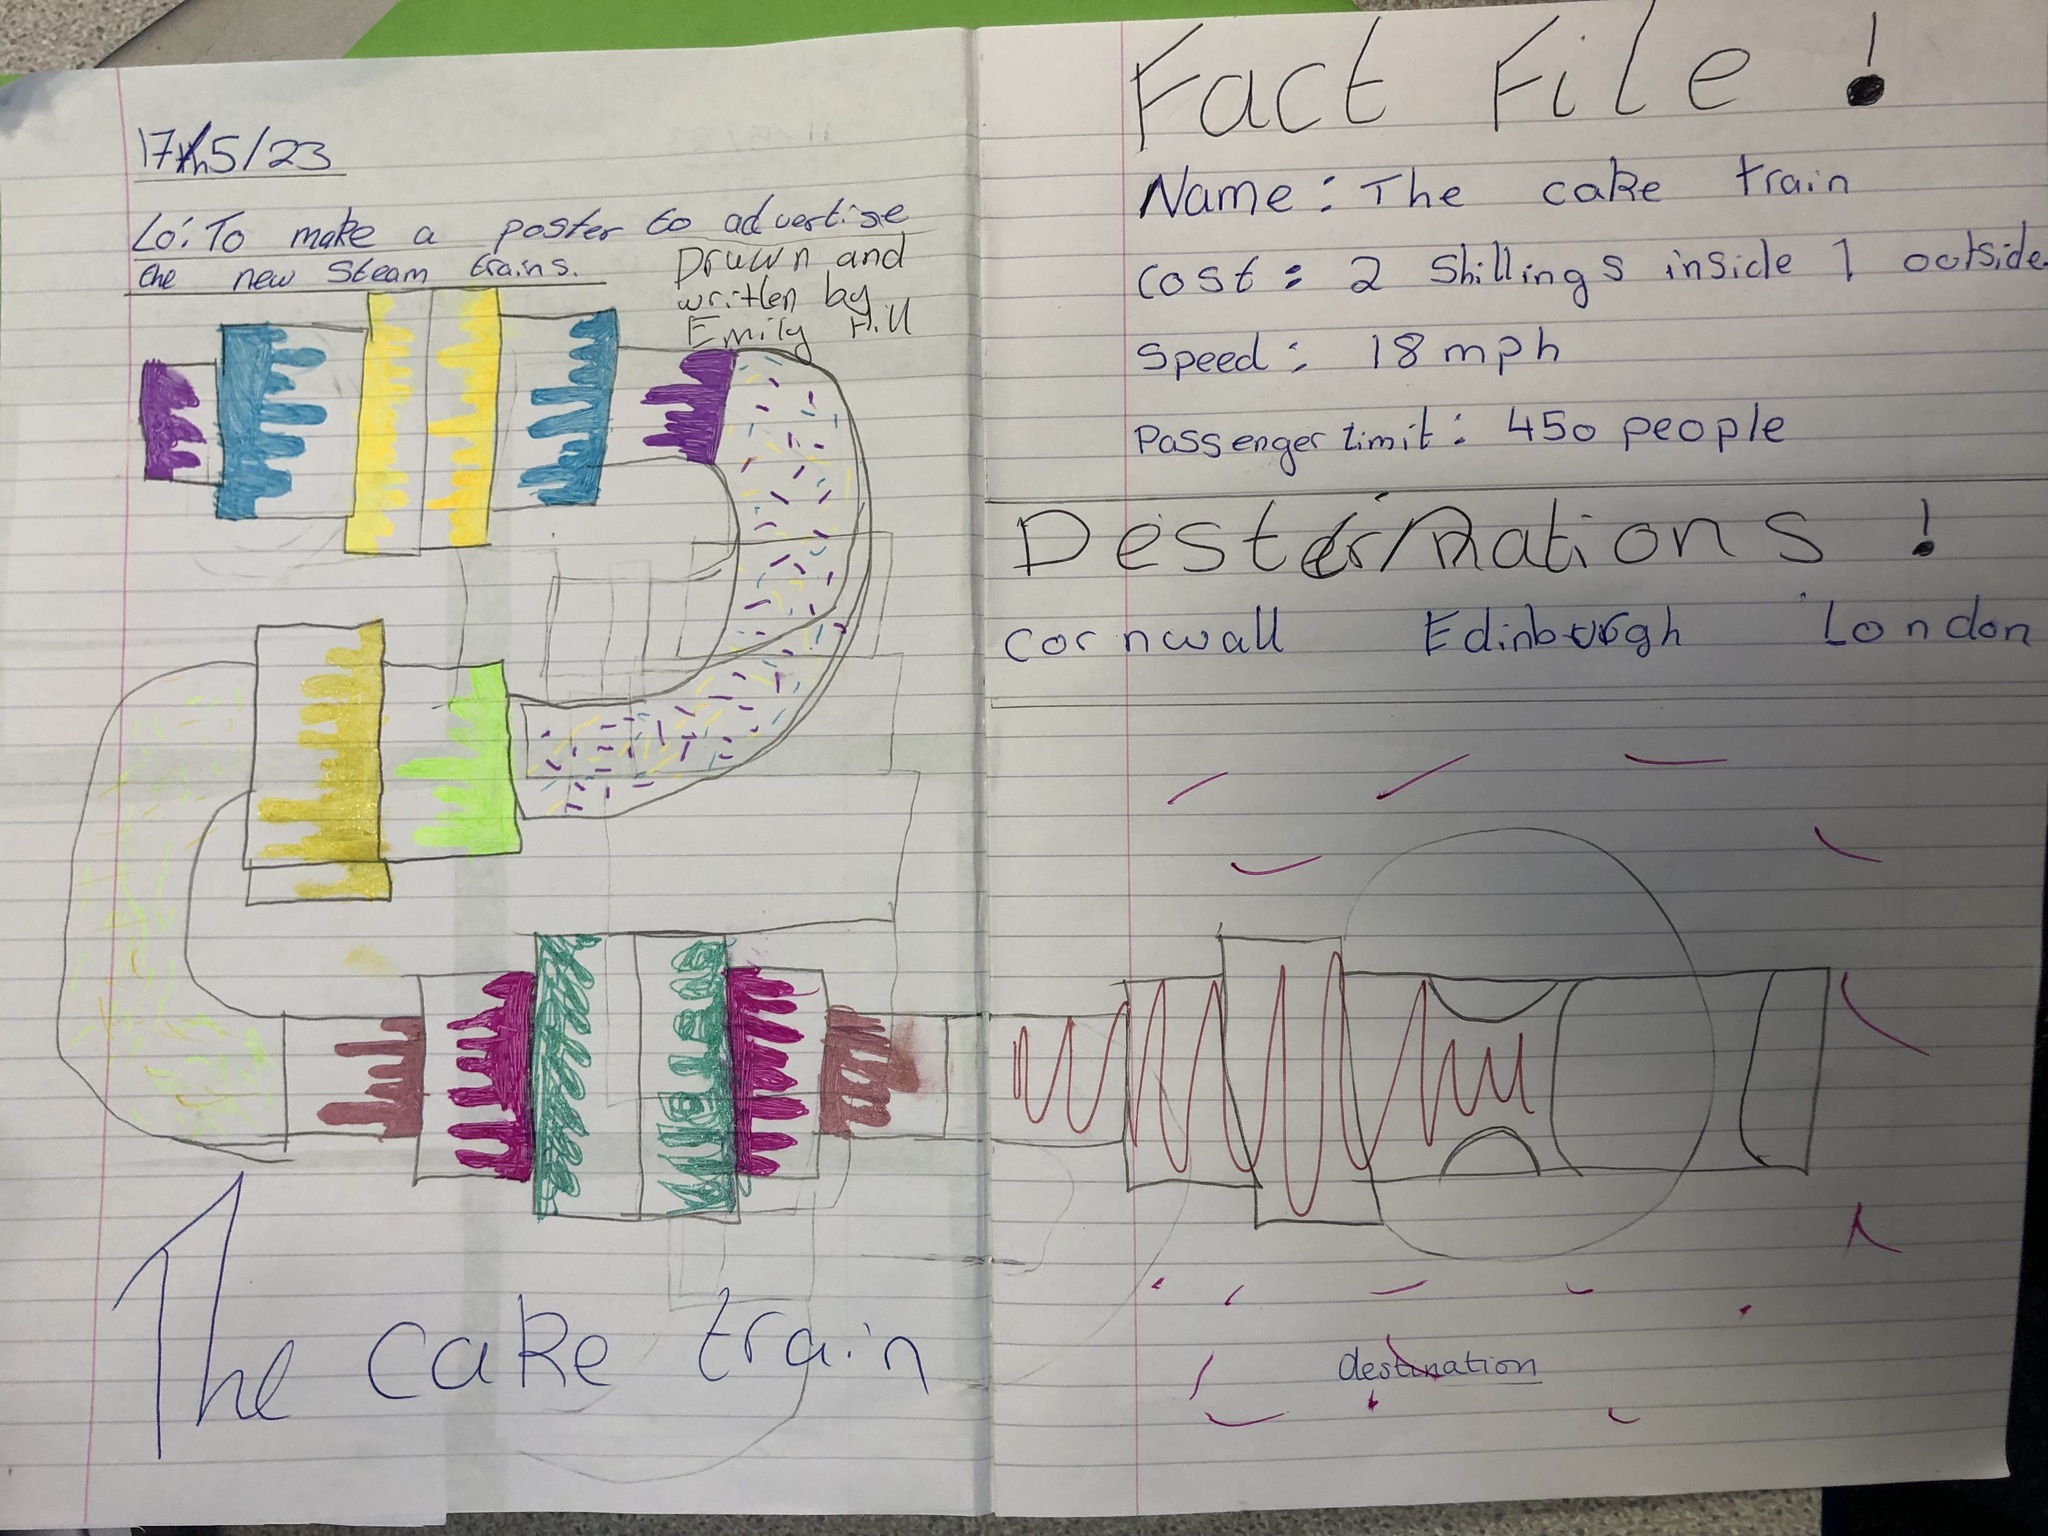 17th5/23
Lo: To make a poster to advertise
the new Steam trains.
Drawn and
written by
Emily Hill
The cake train
Fact File!
Name: The cake train
Cost: 2 Shillings inside 1 outside
Speed: 18 mph
Passenger limit: 450 people
Destinations!
Cornwall Edinburgh London
destination